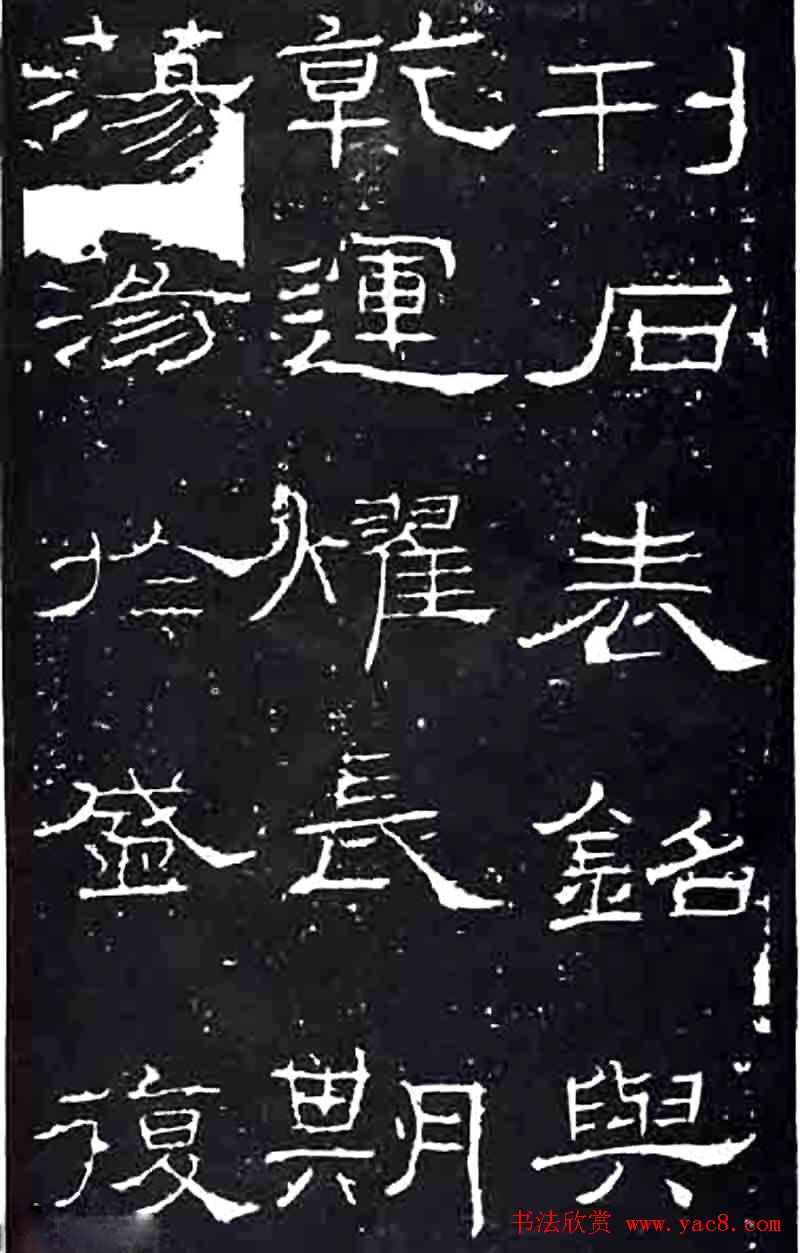 刊石表銘與
乾運燿長期
蕩蕩於盛復
书法欣赏 www.yac8.com